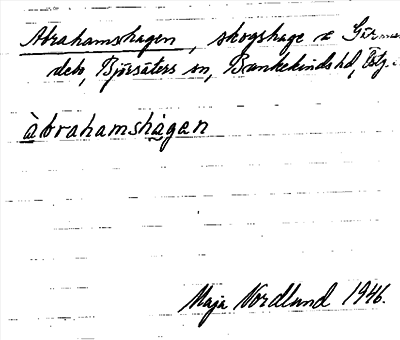 Abrahamshagen, skogshage å
deb, Björsäters sn, Bankekinds hd, Östg.
àbrahamshа̀gan
Maja Nordlund 1946.